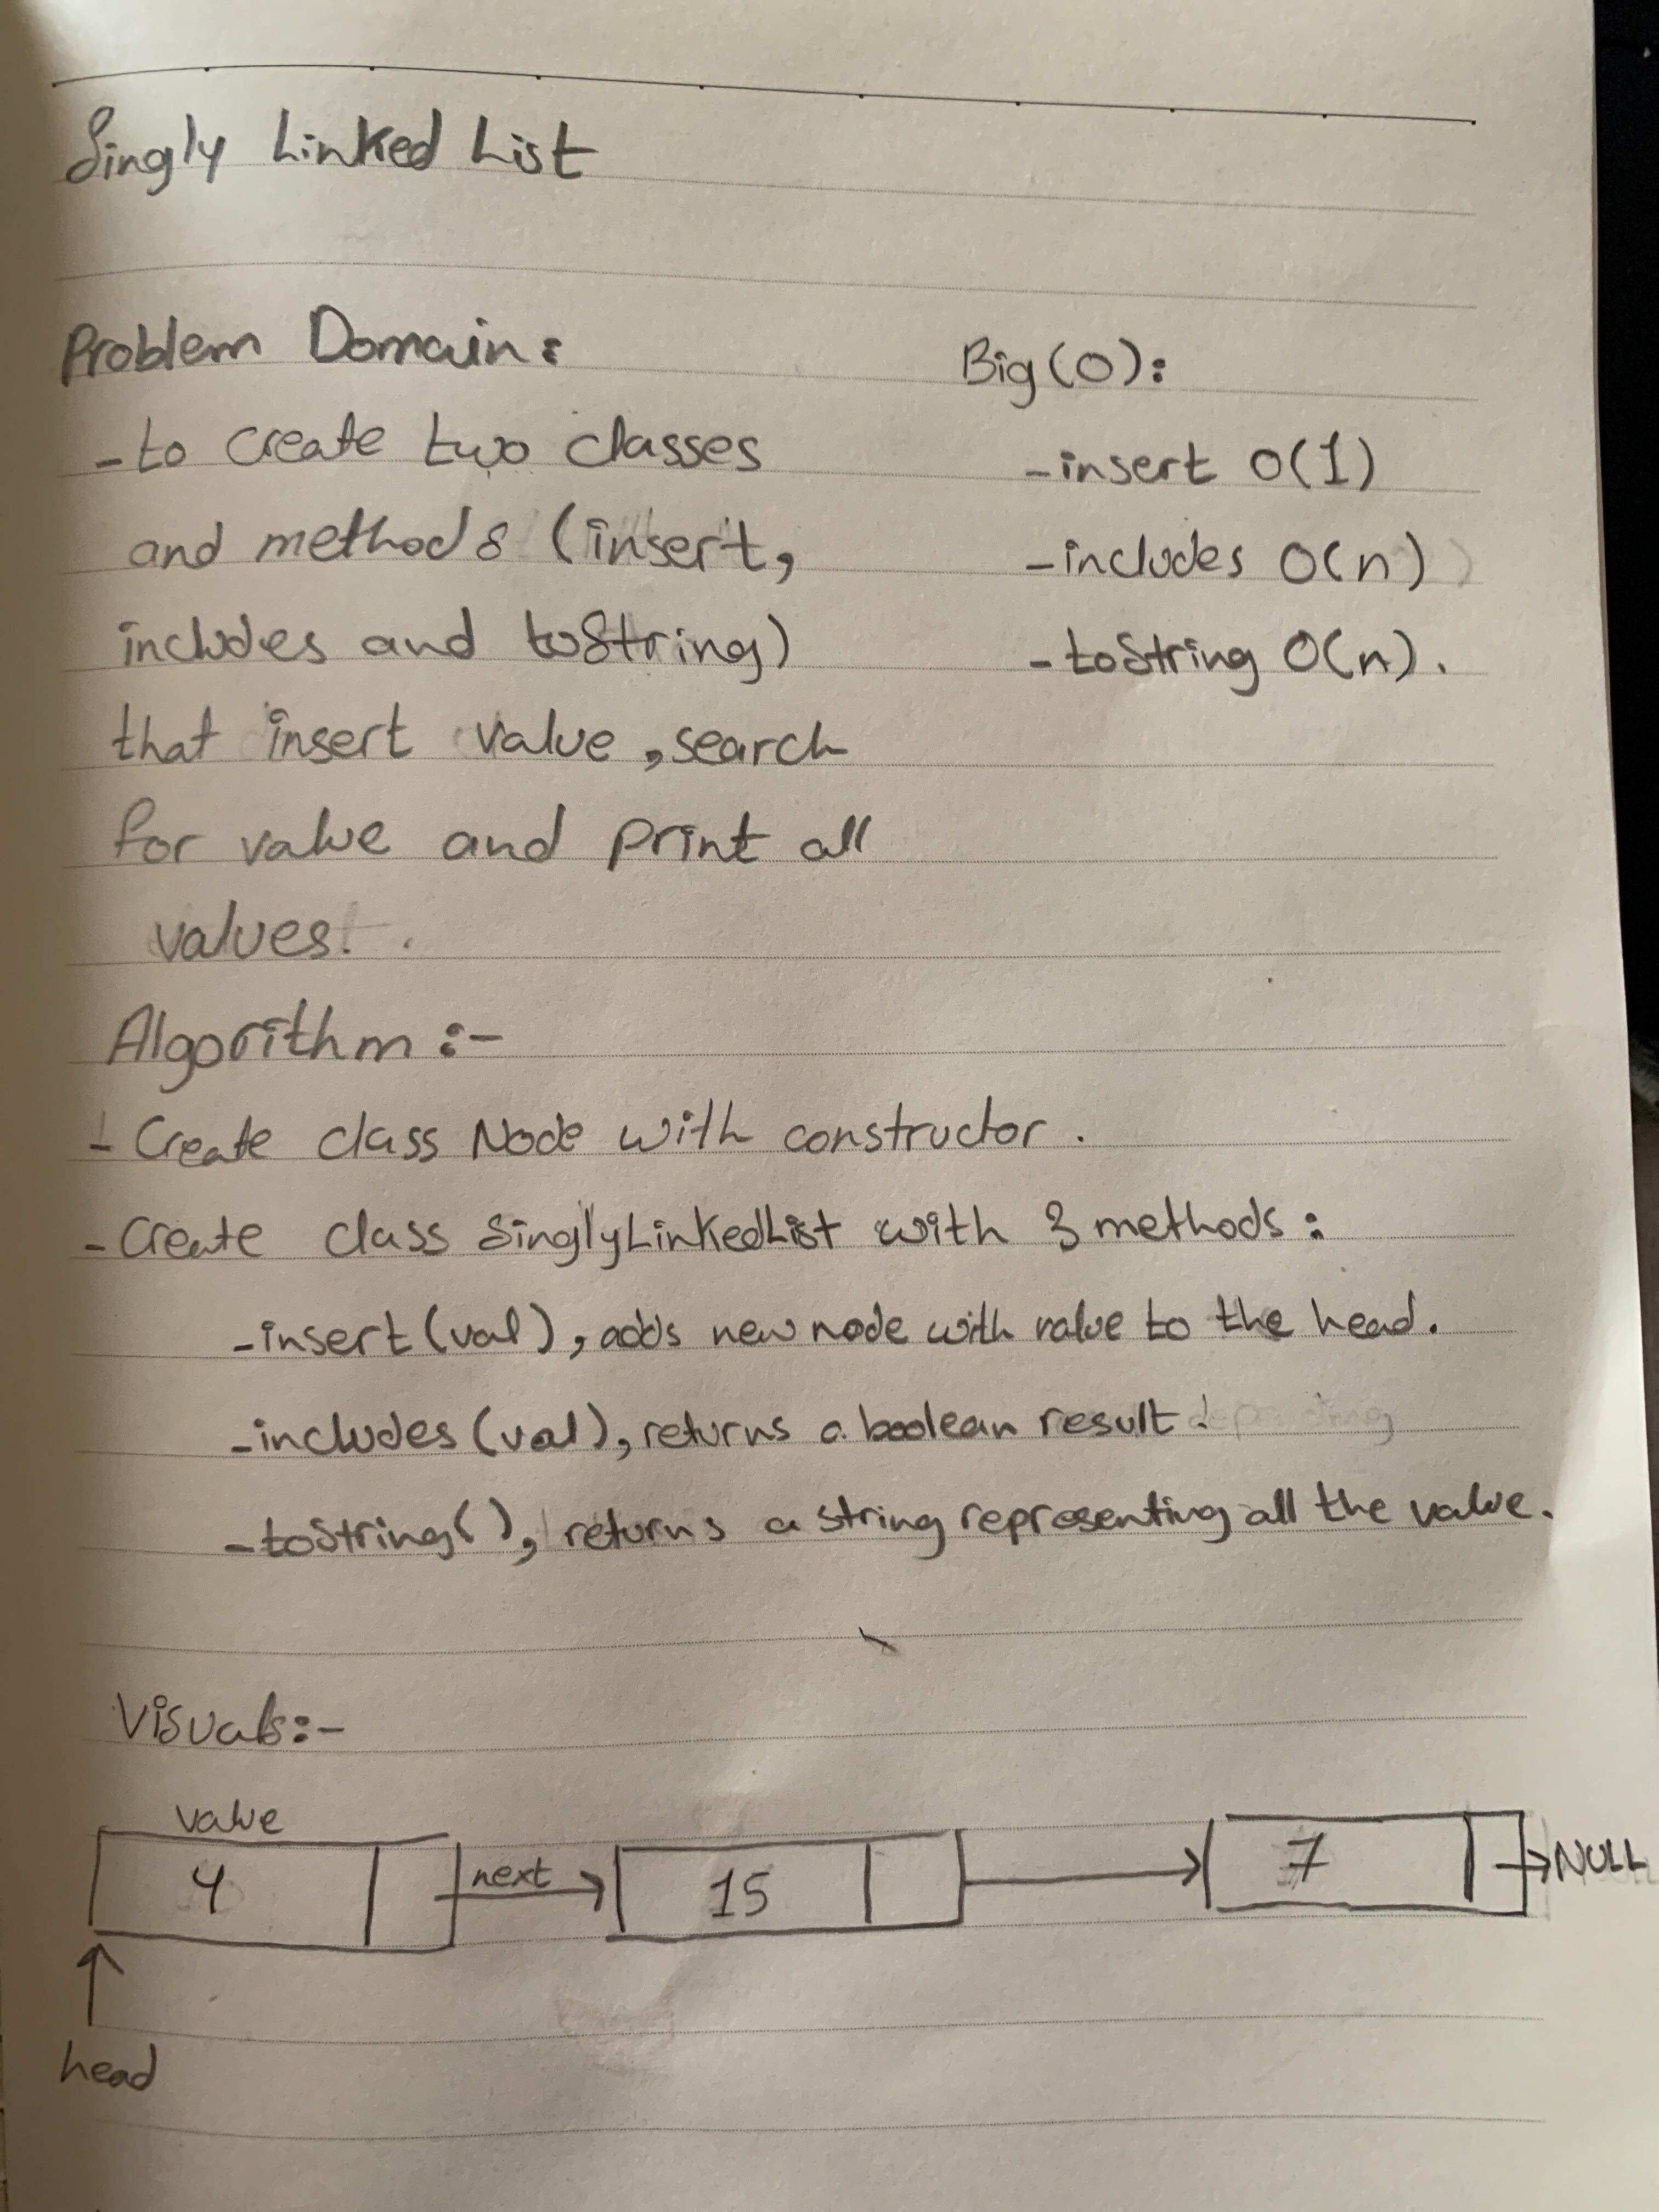 Singly Linked List
Problem Domain:
-to create two classes
and methods (insert,
includes and toString)
that insert value, search
for value and print all
values.
Big(O):
-insert O(1)
-includes O(n)
-toString O(n).
Algorithm:-
-Create class Node with constructor.
-Create class SinglyLinkedList with 3 methods:
-insert(val), adds new node with value to the head.
-includes(val), returns a boolean result.
-toString(), returns a string representing all the value.
Visuals:-
value
4 next 15 7 NULL
head